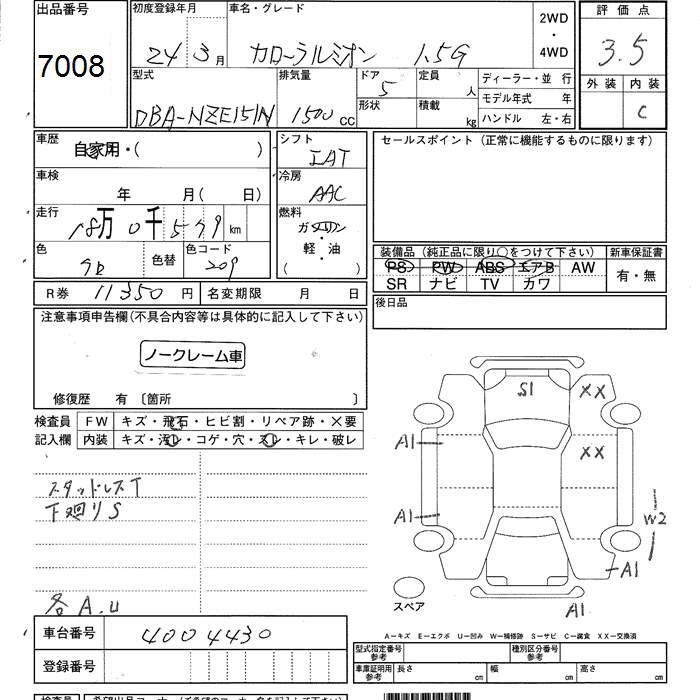 出品番号
7008
初度登録年月 24 3月
車名・グレード カローラルミオン 1.5G
2WD・4WD
評価点 3.5
外装 内装 C
型式 DBA-NZE151N
排気量 1500 CC
ドア 5
形状
定員 人
積載 kg
ディーラー・並 行
モデル年式 年
ハンドル 左・右
車歴 自家用・( )
シフト IAT
車検 年 月 ( 日)
冷房 AAC
走行 18万 0千 579 km
燃料 ガソリン 軽・油 ( )
色 色替 色コード 209
R券 11350 円 名変期限 月 日
セールスポイント (正常に機能するものに限ります)
装備品 (純正品に限り○をつけて下さい) 新車保証書
PS PW ABS エアB AW 有・無
SR ナビ TV カワ
後日品
注意事項申告欄(不具合内容等は具体的に記入して下さい)
ノークレーム車
修復歴 有 〔箇所 〕
検査員 FW キズ・飛石・ヒビ割・リペア跡・X要
記入欄 内装 キズ・汚レ・コゲ・穴・スレ・キレ・破レ
スタッドレスT
下廻りS
各A.U
S1 XX
A1 XX
A1 W2
A1
スペア A1
A-キズ E-エクボ U-凹み W-補修跡 S-サビ C-腐食 XX-交換済
車台番号 4004430
登録番号
型式指定番号 参考 種別区分番号 参考
車庫証明用 参考 長さ cm 幅 cm 高さ cm